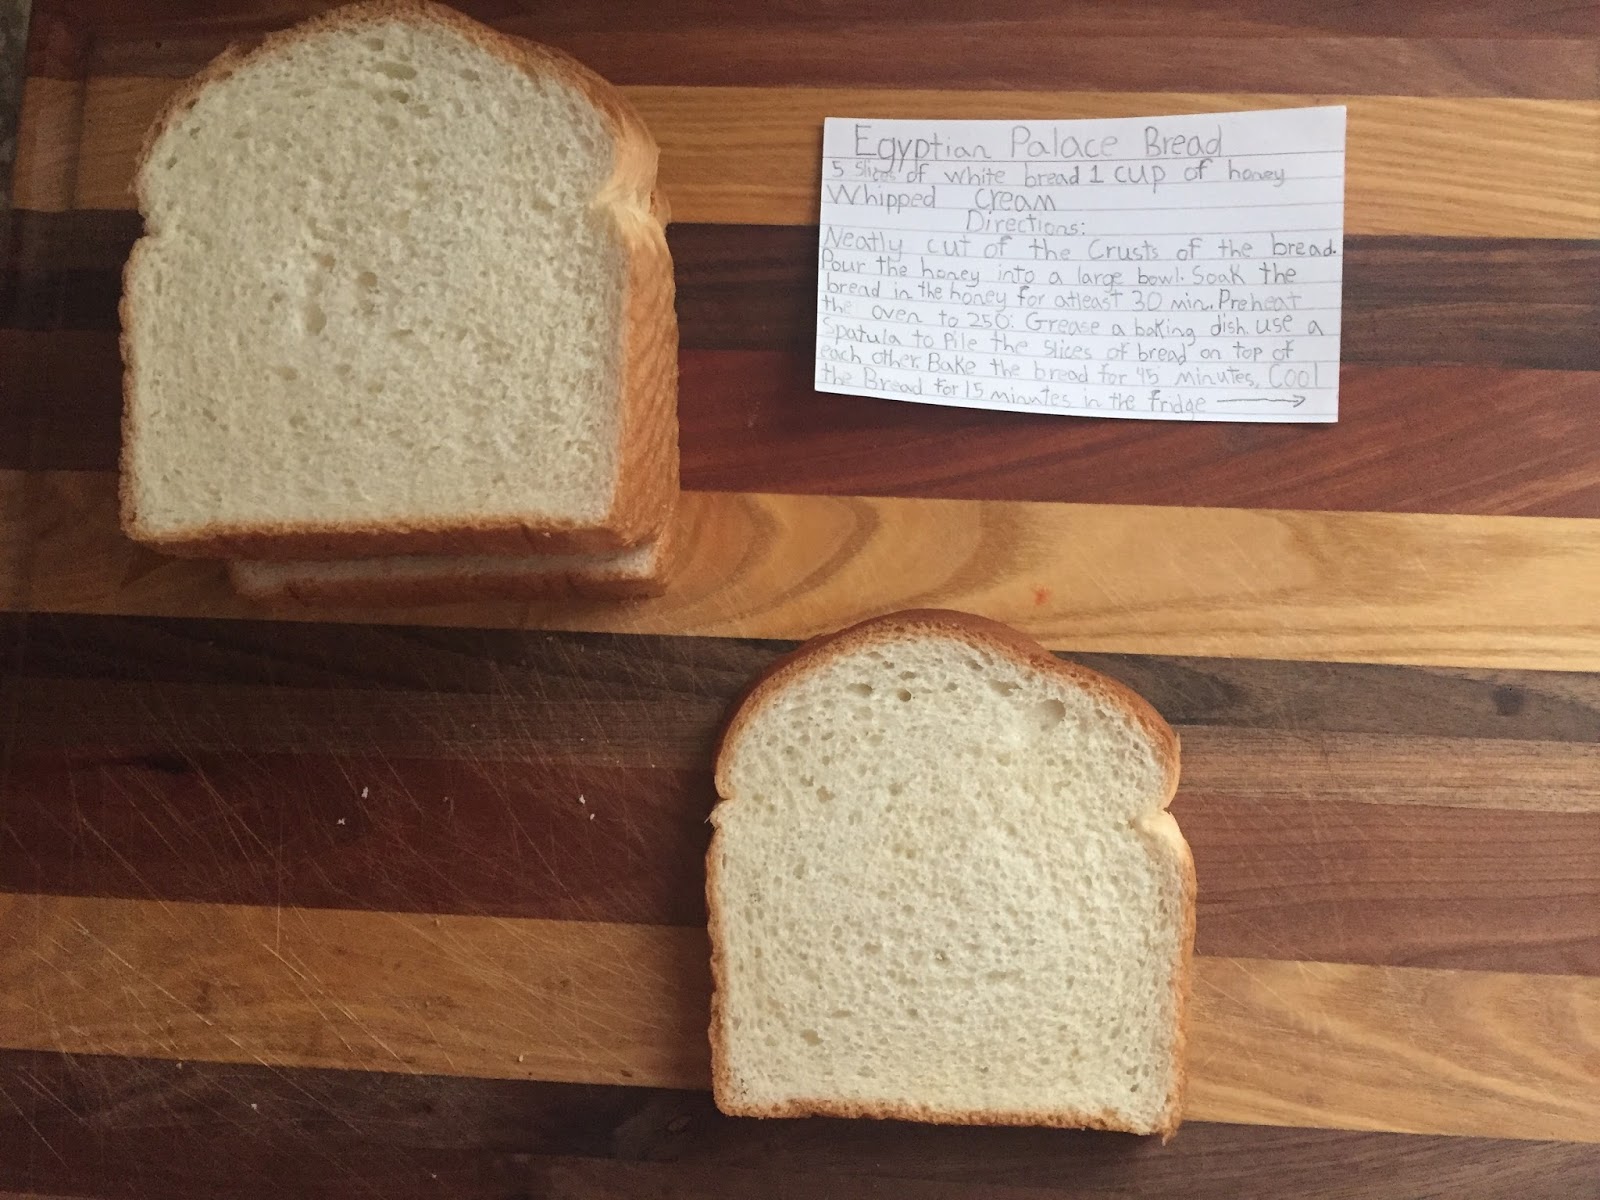 Egyptian Palace Bread
5 slices of white bread 1 cup of honey
Whipped cream
Directions:
Neatly cut of the Crusts of the bread.
Pour the honey into a large bowl. Soak the
bread in the honey for atleast 30 min. Preheat
the oven to 250°. Grease a baking dish. use a
Spatula to Pile the slices of bread on top of
each other. Bake the bread for 45 minutes. Cool
the Bread for 15 minutes in the fridge →